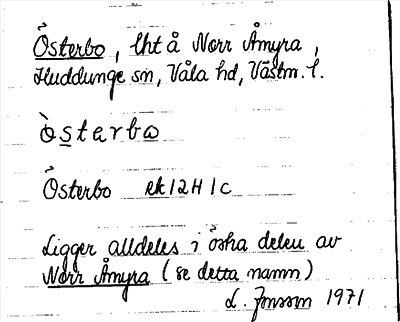 Österbo, lht å Norr Åmyra,
Huddunge sn, Våla hd, Västm. l.
òsterbω
Österbo ek 12H 1c
Ligger alldeles i östra delen av
Norr Åmyra (se detta namn)
L. Jonsson 1971